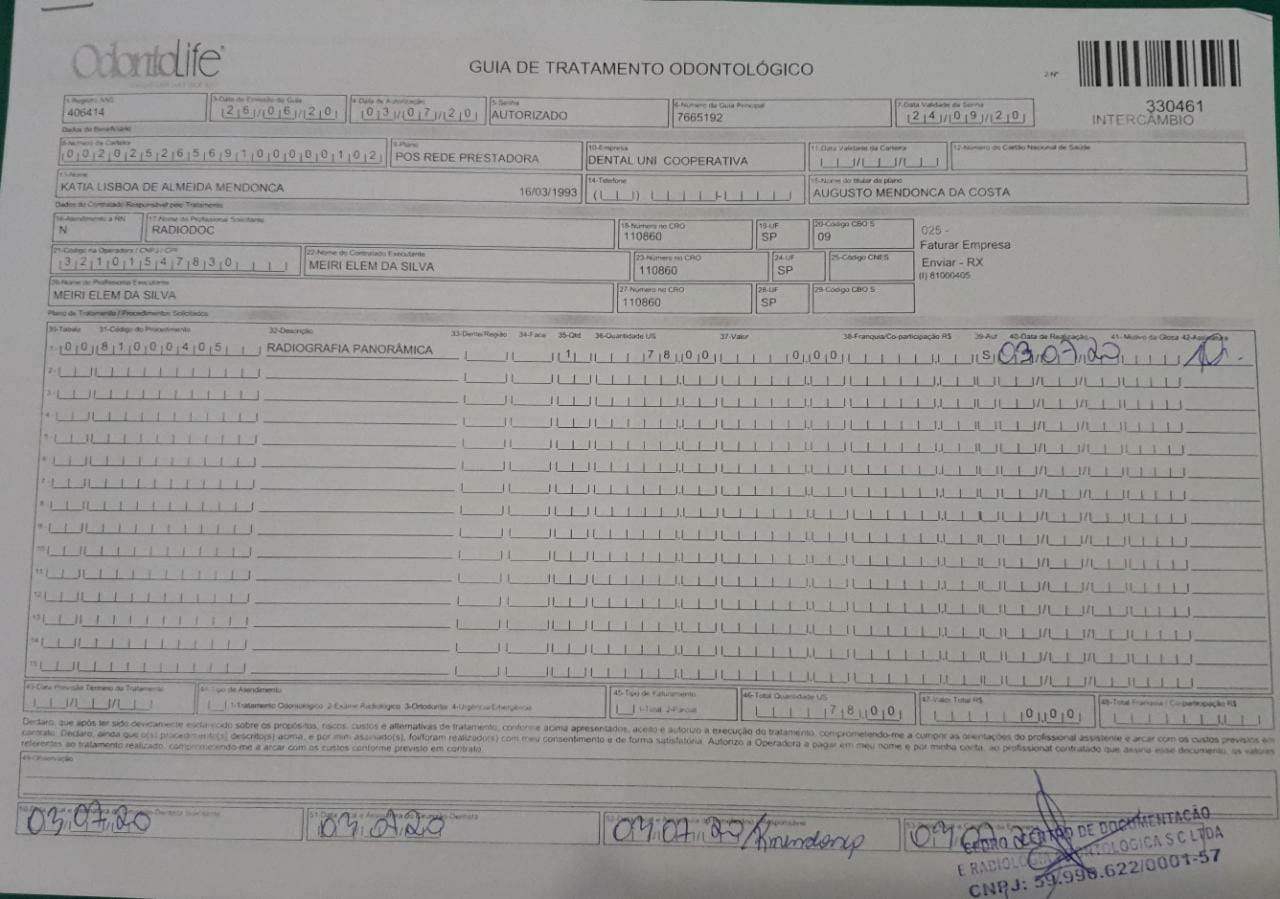 OdontoLife
GUIA DE TRATAMENTO ODONTOLÓGICO
2-Nº
330461
INTERCÂMBIO
1-Registro ANS
406414
3-Data de Emissão da Guia
26/06/20
4-Data de Autorização
03/07/20
5-Senha
AUTORIZADO
6-Número da Guia Principal
7665192
7-Data Validade da Senha
24/09/20
Dados do Beneficiário
8-Número da Carteira
00202526569100000102
9-Plano
POS REDE PRESTADORA
10-Empresa
DENTAL UNI COOPERATIVA
11-Data Validade da Carteira
12-Número do Cartão Nacional de Saúde
13-Nome
KATIA LISBOA DE ALMEIDA MENDONCA 16/03/1993
14-Telefone
15-Nome do titular do plano
AUGUSTO MENDONCA DA COSTA
Dados do Contratado Responsável pelo Tratamento
16-Atendimento a RN
N
17-Nome do Profissional Solicitante
RADIODOC
18-Número no CRO
110860
19-UF
SP
20-Código CBO S
09
025 -
Faturar Empresa
Enviar - RX
(I) 81000405
21-Código na Operadora / CNPJ / CPF
32101547830
22-Nome do Contratado Executante
MEIRI ELEM DA SILVA
23-Número no CRO
110860
24-UF
SP
25-Código CNES
26-Nome do Profissional Executante
MEIRI ELEM DA SILVA
27-Número no CRO
110860
28-UF
SP
29-Código CBO S
Plano de Tratamento / Procedimentos Solicitados
30-Tabela 31-Código do Procedimento 32-Descrição 33-Dente/Região 34-Face 35-Qtd 36-Quantidade US 37-Valor 38-Franquia/Co-participação R$ 39-Aut 40-Data de Realização 41-Motivo da Glosa 42-Assinatura
1- 00 81000405 RADIOGRAFIA PANORÂMICA 1 78,00 0,00 S 03/07/20
2-
3-
4-
5-
6-
7-
8-
9-
10-
11-
12-
13-
14-
15-
43-Data Previsão Término do Tratamento
44-Tipo de Atendimento
1-Tratamento Odontológico 2-Exame Radiológico 3-Ortodontia 4-Urgência/Emergência
45-Tipo de Faturamento
1-Total 2-Parcial
46-Total Quantidade US
78,00
47-Valor Total R$
0,00
48-Total Franquia / Co-participação R$
Declaro, que após ter sido devidamente esclarecido sobre os propósitos, riscos, custos e alternativas de tratamento, conforme acima apresentados, aceito e autorizo a execução do tratamento, comprometendo-me a cumprir as orientações do profissional assistente e arcar com os custos previstos em
contrato. Declaro, ainda que o(s) procedimento(s) descrito(s) acima, e por mim assinado(s), foi/foram realizado(s) com meu consentimento e de forma satisfatória. Autorizo a Operadora a pagar em meu nome e por minha conta, ao profissional contratado que assina esse documento, os valores
referentes ao tratamento realizado, comprometendo-me a arcar com os custos conforme previsto em contrato.
49-Observação
03/07/20
03/07/20
03/07/20 Kmendonça
03/07/20
CENTRO DE DOCUMENTAÇÃO
E RADIOLOGIA ODONTOLOGICA S C LTDA
CNPJ: 59.998.622/0001-57